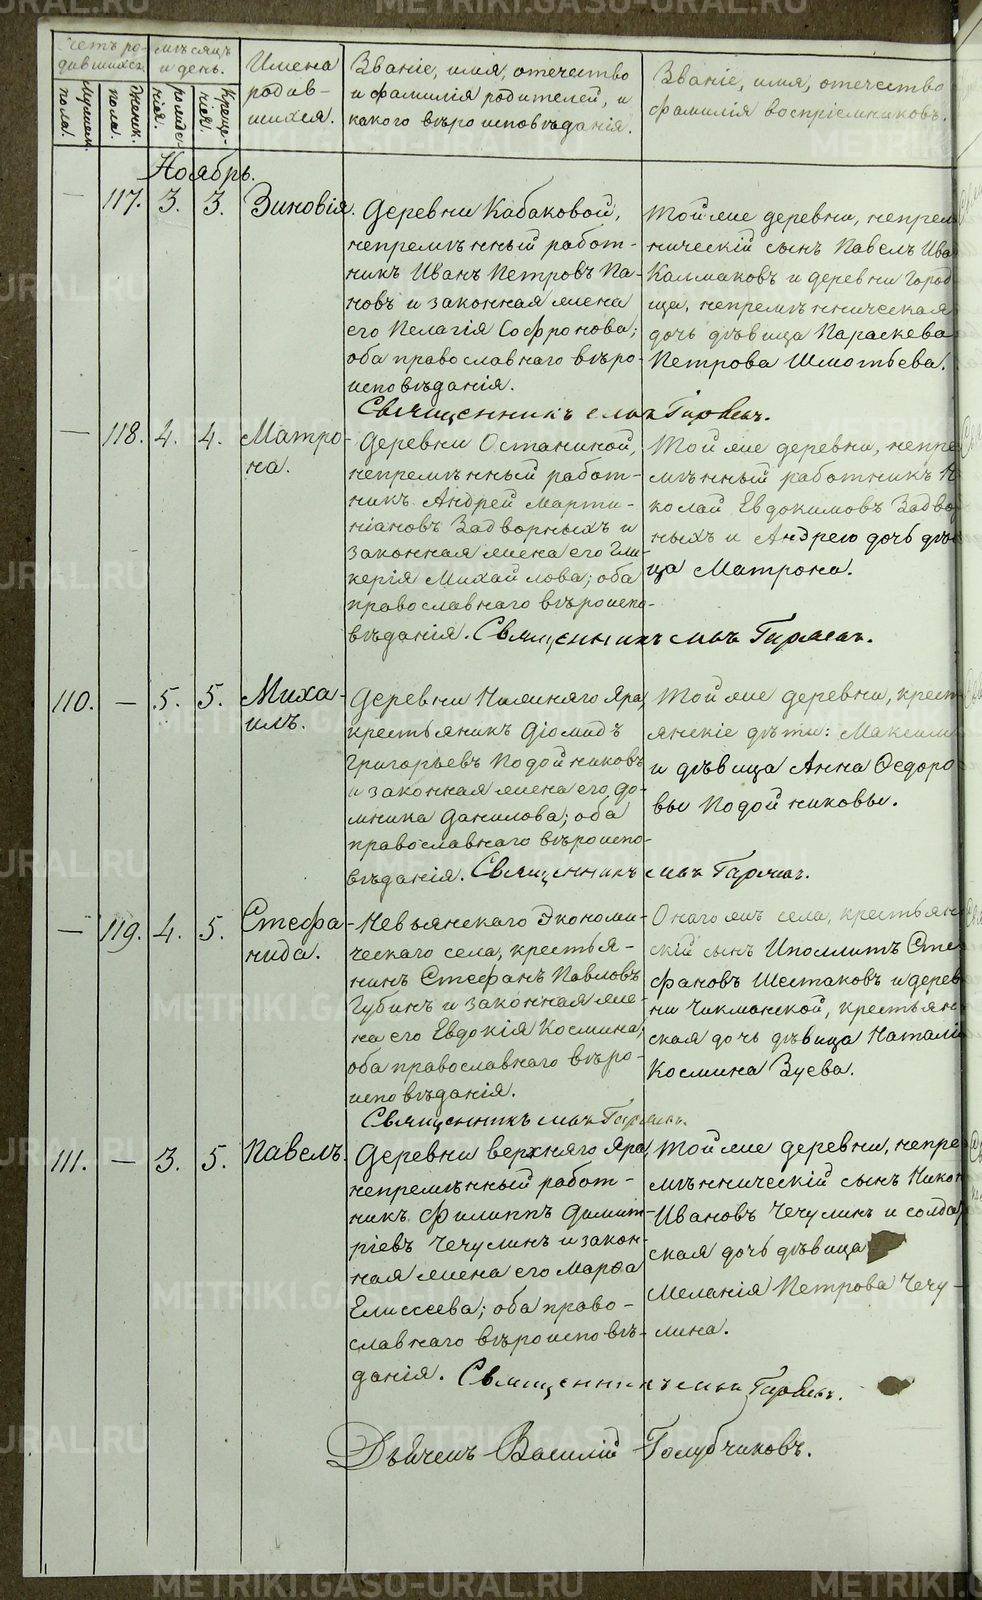 Счетъ ро-
дившихся.
Мужеск.
пола.
Женск.
пола.
Мѣсяцъ
и день.
рожде-
нія.
Креще-
нія.
Имена
родив-
шихся.
Званіе, имя, отечество
и фамилія родителей, и
какого вѣроисповѣданія.
Званіе, имя, отечество
фамилія воспріемниковъ.
Ноябрь.
— 117. 3. 3. Зиновія.
Деревни Кабаковой,
непремѣнный работ-
никъ Иванъ Петровъ Па-
новъ и законная жена
его Пелагія Софронова;
оба православнаго вѣро-
исповѣданія.
Той же деревни, непрем
ническій сынъ Павелъ Ива
Калмаковъ и деревни Город
ища, непремѣнническая
дочь дѣвица Параскева
Петрова Шмотьева.
Священникъ
— 118. 4. 4. Матро-
на.
Деревни Останиной,
непремѣнный работ-
никъ Андрей Марти-
ніановъ Задворныхъ и
законная жена его Гли-
керія Михайлова; оба
православнаго вѣроиспо-
вѣданія. Священникъ
Той же деревни, непре
мѣнный работникъ Н
колай Евдокимовъ Задво
ныхъ и Андрею дочь дѣв
ица Матрона.
110. — 5. 5. Миха-
илъ.
Деревни Нижняго Яра,
крестьяникъ Діомидъ
Григорьевъ Подойниковъ
и законная жена его, До-
мника Данилова; оба
православнаго вѣроиспо-
вѣданія. Священникъ
Той же деревни, крест
янскіе дѣти: Максим
и дѣвица Анна Ѳедоро
вы Подойниковы.
— 119. 4. 5. Стефа-
нида.
Невьянскаго Экономи-
ческаго села, крестья-
нинъ Стефанъ Павловъ
Губинъ и законная же-
на его Евдокія Космина;
оба православнаго вѣро-
исповѣданія.
Онаго жъ села, крестьян
скій сынъ Ипполитъ Сте
фановъ Шестаковъ и дерев
ни Чикманской, крестьян
ская дочь дѣвица Наталі
Космина Зуева.
Священникъ
111. — 3. 5. Павелъ.
Деревни верхняго Яра,
непремѣнный работ-
никъ Филиппъ Димит-
ріевъ Чечулинъ и закон-
ная жена его Марѳа
Елисеева; оба право-
славнаго вѣроисповѣ-
данія. Священникъ
Той же деревни, непре
мѣнническій сынъ Никон
Ивановъ Чечулинъ и солда
ская дочь дѣвица
Меланія Петрова Чечу-
лина.
Дьячекъ Василій Голубчиковъ.
METRIKI.GASO-URAL.RU